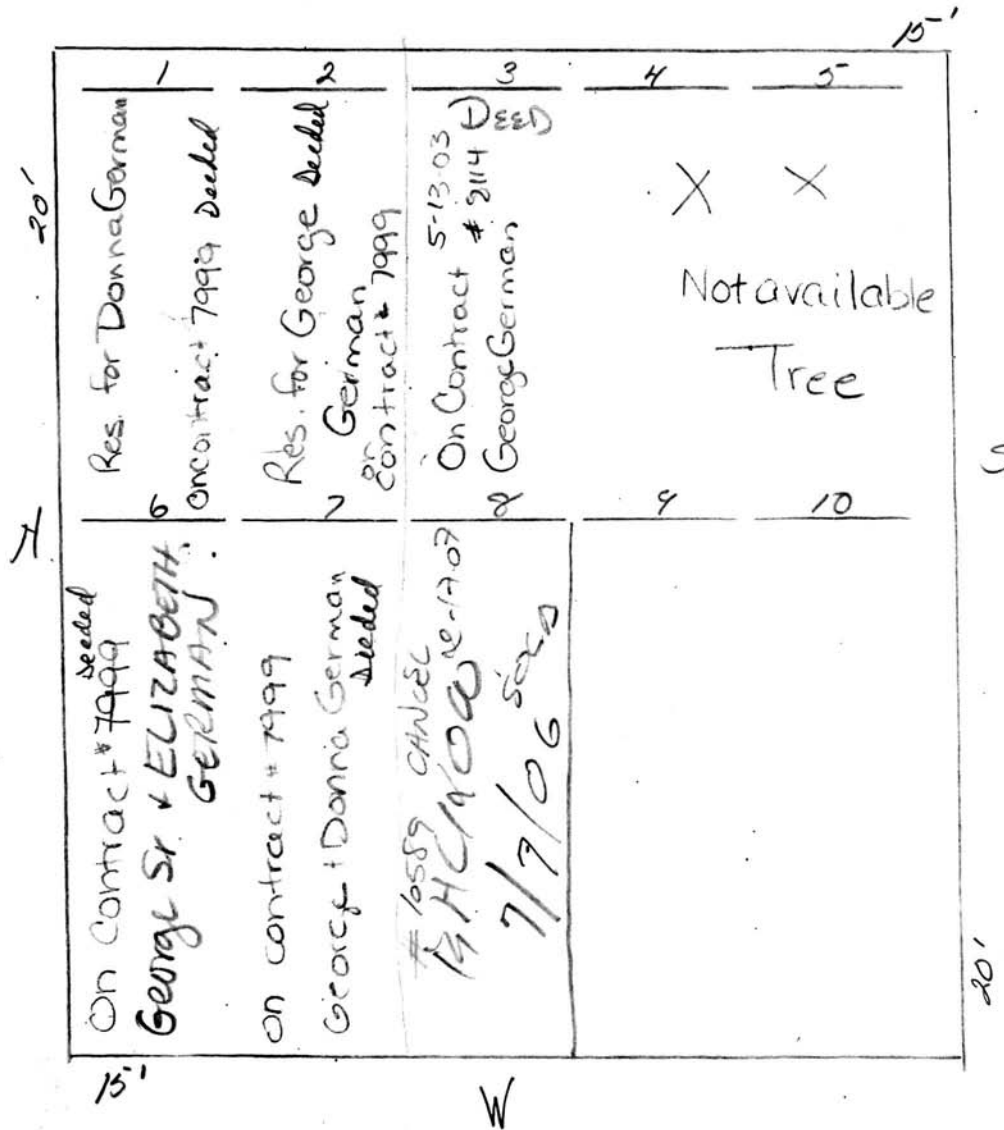 15'
20'
1
Res. for Donna German
on contract 7999 Deeded
2
Res. for George Deeded
German
on
contract # 7999
3
On Contract 5-13-03
# 8114 DEED
George German
4
X
5
X
Not available
Tree
6
On Contract # 7999 Deeded
George Sr. + ELIZABETH
GERMAN
7
on contract # 7999
George + Donna German
Deeded
8
# 10589 CANCEL
7/7/06
9
10
15'
W
20'